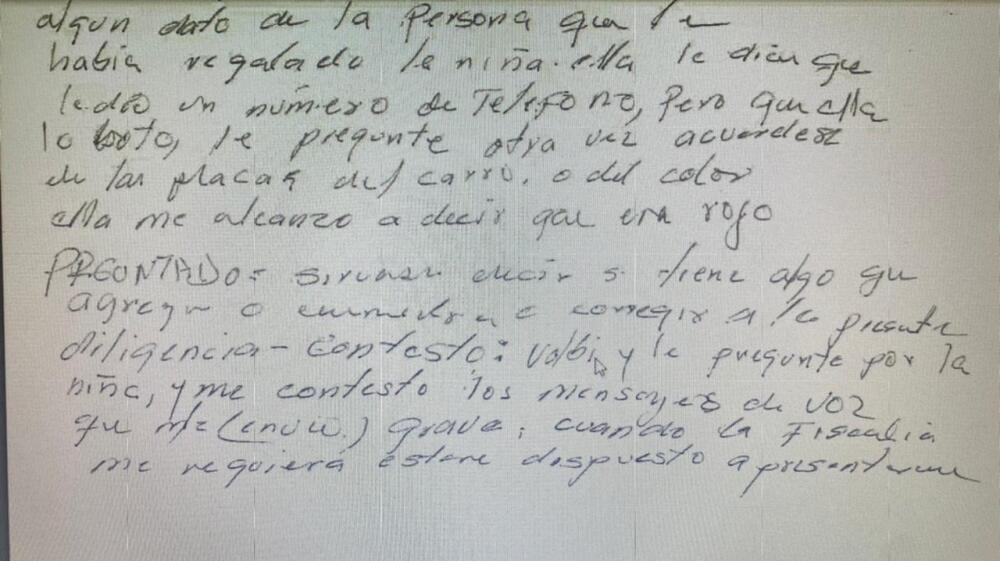 algun dato de la Persona que le
habia regalado la niña. ella le dicen que
le dio un número de Telefono, Pero que ella
lo boto, le pregunte otra vez acuerdese
de las placas del carro, o del color
ella me alcanzo a decir que era rojo
PREGUNTADO= sirvase decir si tiene algo que
agregar o enmendar o corregir a la presente
diligencia - Contesto: Volbi y le pregunte por la
niña, y me contesto los mensajes de voz
que me (envio.) grave; cuando la Fiscalia
me requiera estare dispuesto a presentarme